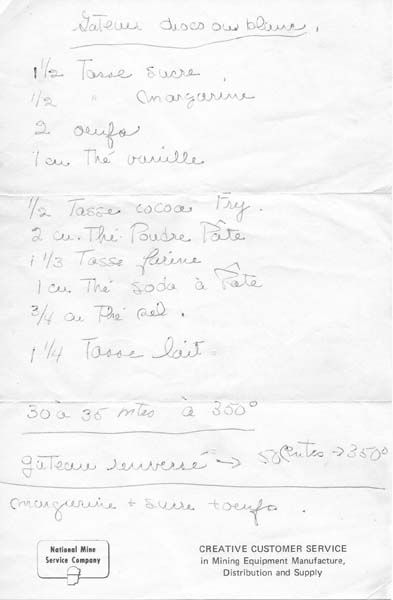 Gateau choco ou blanc.
1 1/2 Tasse sucre
1/2 " margarine
2 oeufs
1 cu Thé vanille
1/2 Tasse cocoa Fry.
2 cu. Thé Poudre Pâte
1 1/3 Tasse farine
1 cu. Thé soda à Pate
3/4 cu Thé sel.
1 1/4 Tasse lait
30 à 35 mtes à 350°
gateau renversé → 50 mtes → 350°
margarine + sucre + oeufs.
National Mine
Service Company
CREATIVE CUSTOMER SERVICE
in Mining Equipment Manufacture,
Distribution and Supply